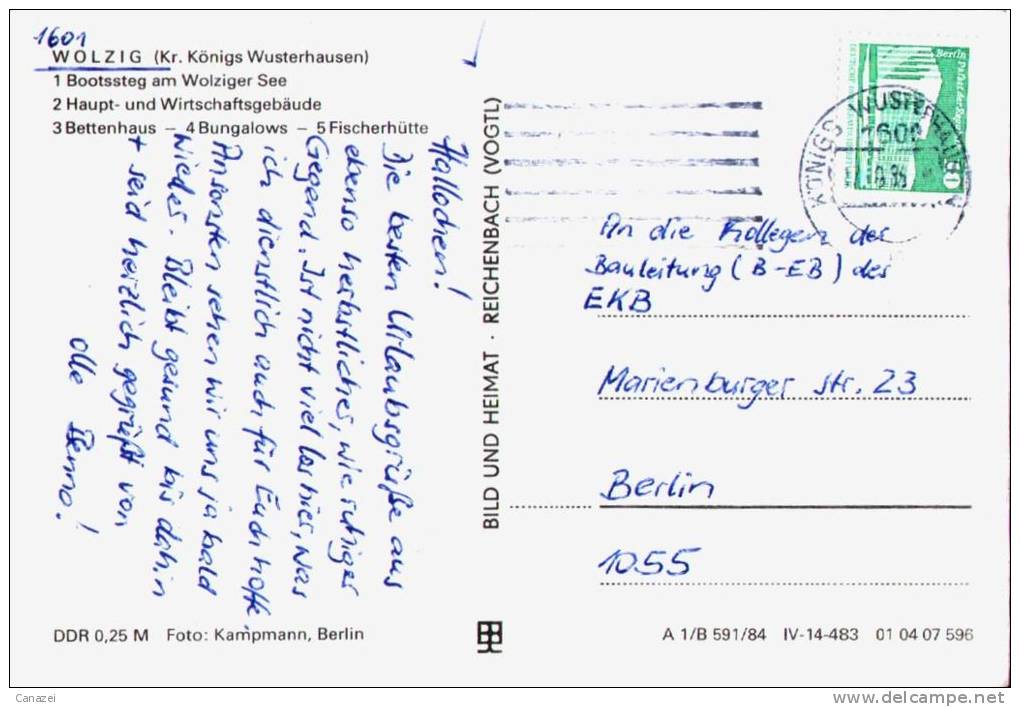 1601
WOLZIG (Kr. Königs Wusterhausen)
1 Bootssteg am Wolziger See
2 Haupt- und Wirtschaftsgebäude
3 Bettenhaus – 4 Bungalows – 5 Fischerhütte
Hallochen!
Die besten Urlaubsgrüße aus
ebenso herbstlicher, wie ruhiger
Gegend. Ist nicht viel los hier, was
ich dienstlich auch für Euch hoffe.
Ansonsten sehen wir uns ja bald
wieder. Bleibt gesund bis dahin
+ seid herzlich gegrüßt von
olle Benno!
BILD UND HEIMAT · REICHENBACH (VOGTL)
Berlin Palast der
KÖNIGS WUSTERHAUSEN
An die Kollegen der
Bauleitung (B-EB) des
EKB
Marienburger Str. 23
Berlin
1055
DDR 0,25 M Foto: Kampmann, Berlin
A 1/B 591/84 IV-14-483 01 04 07 596
Canazei
www.delcampe.net